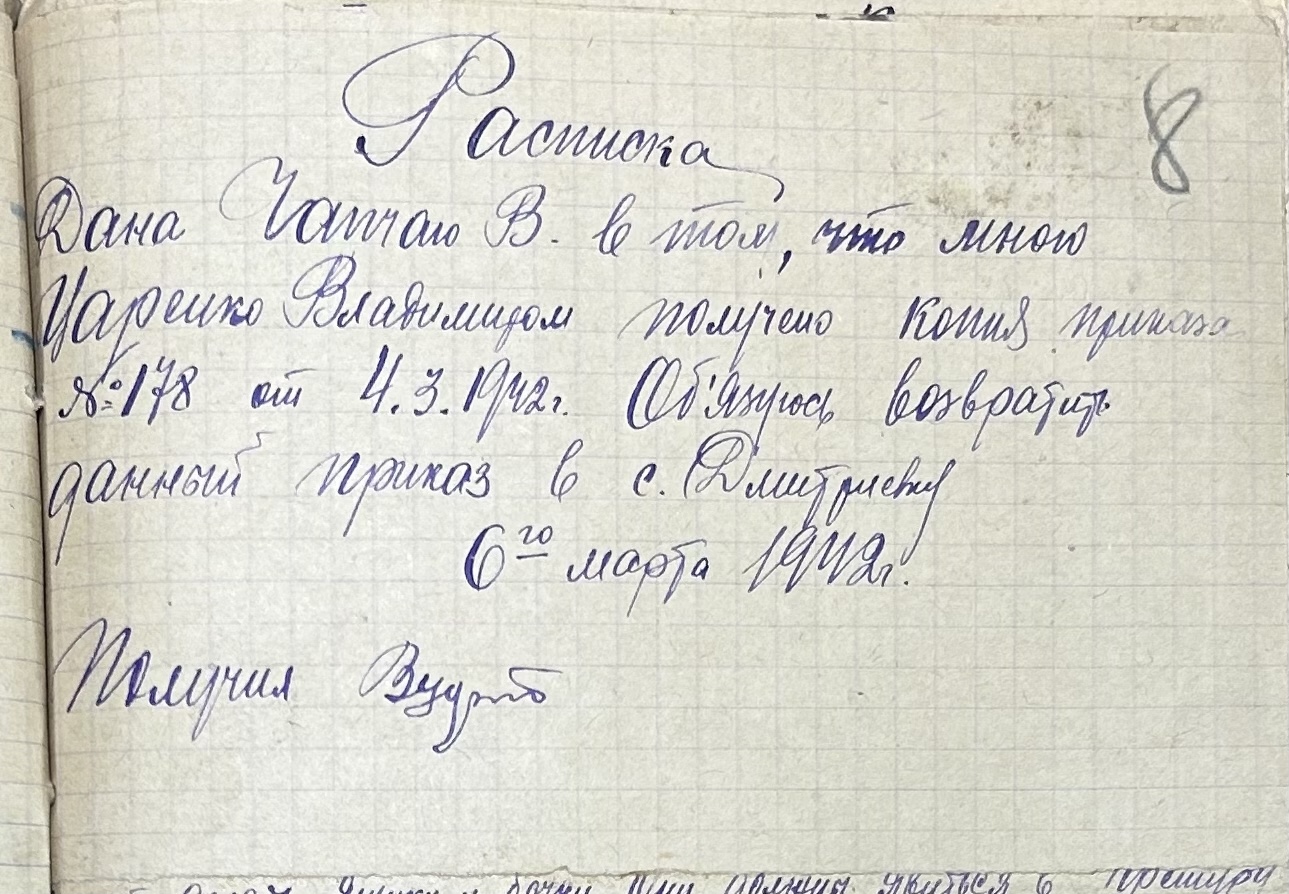 Расписка
8
Дана Чапчаю В. в том, что мною
Царенко Владимиром получено копия приказа
№178 от 4.3.1942г. Об'язуюсь возвратить
данный приказ в с. Дмитриевку
6го марта 1942г.
Получил